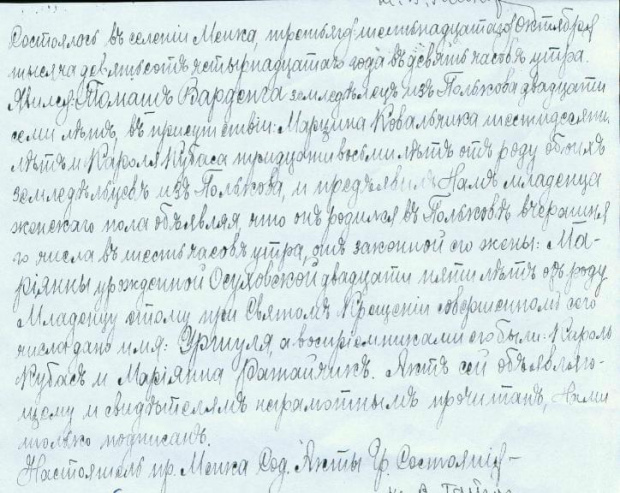 Состоялось въ селеніи Моика, третьяго | шестьнадцатаго Октября
тысяча девятьсотъ четырнадцатаго года въ девять часовъ утра.
Явился: Томашъ Варденга земледѣлецъ изъ Полькова двадцати
семи лѣтъ, въ присутствіи: Марцина Ковальчика шестидесяти
лѣтъ и Кароля Кубаса тридцати восьми лѣтъ отъ роду обоихъ
земледѣльцовъ изъ Полькова, и предъявилъ Намъ младенца
женскаго пола объявляя, что онъ родился въ Польковѣ вчерашня
го числа въ шесть часовъ утра, отъ законной его жены: Ма-
ріянны урожденной Осуховской двадцати пяти лѣтъ отъ роду
Младенцу этому при Святомъ Крещеніи совершенномъ сего
числа дано имя: Уршуля, а воспріемниками его были: Кароль
Кубасъ и Маріянна Ратайчикъ. Актъ сей объявляю-
щему и свидѣтелямъ неграмотнымъ прочитанъ, Нами
только подписанъ.
Настоятель пр. Моика Сод. Акты Гр. Состоянія –